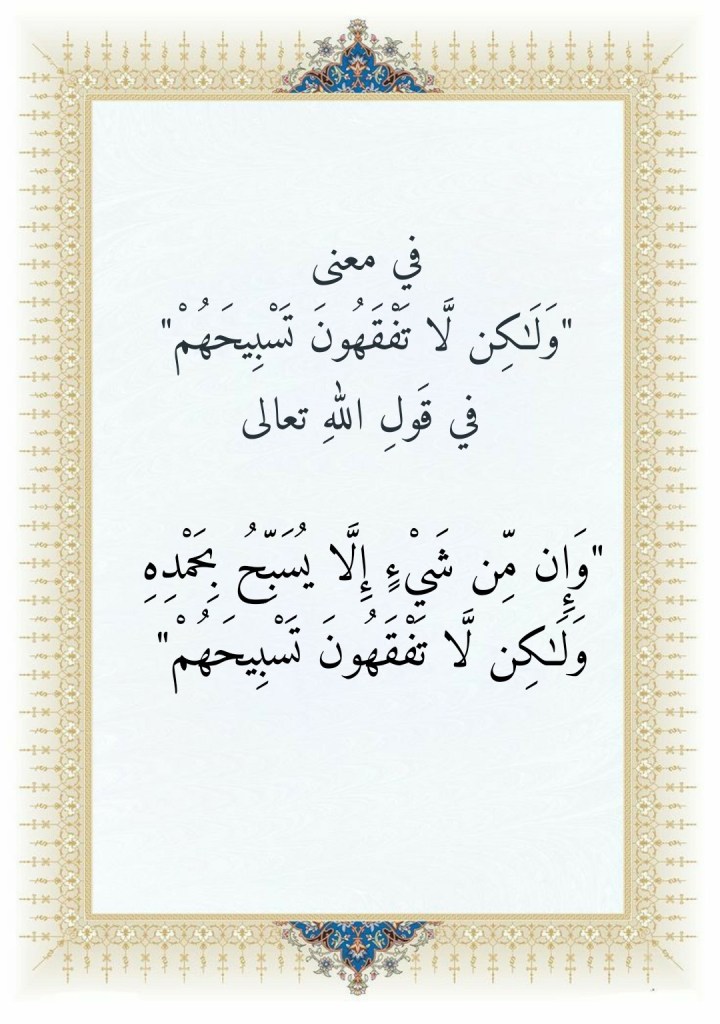 في معنى
"وَلَـٰكِن لَّا تَفْقَهُونَ تَسْبِيحَهُمْ"
في قَولِ اللهِ تعالى
"وَإِن مِّن شَيْءٍ إِلَّا يُسَبِّحُ بِحَمْدِهِ
وَلَـٰكِن لَّا تَفْقَهُونَ تَسْبِيحَهُمْ"